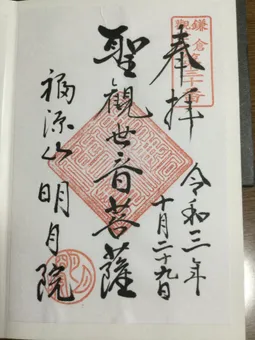 鎌倉
三十番
奉拝
令和三年
十月二十九日
聖觀世音菩薩
福源山明月院